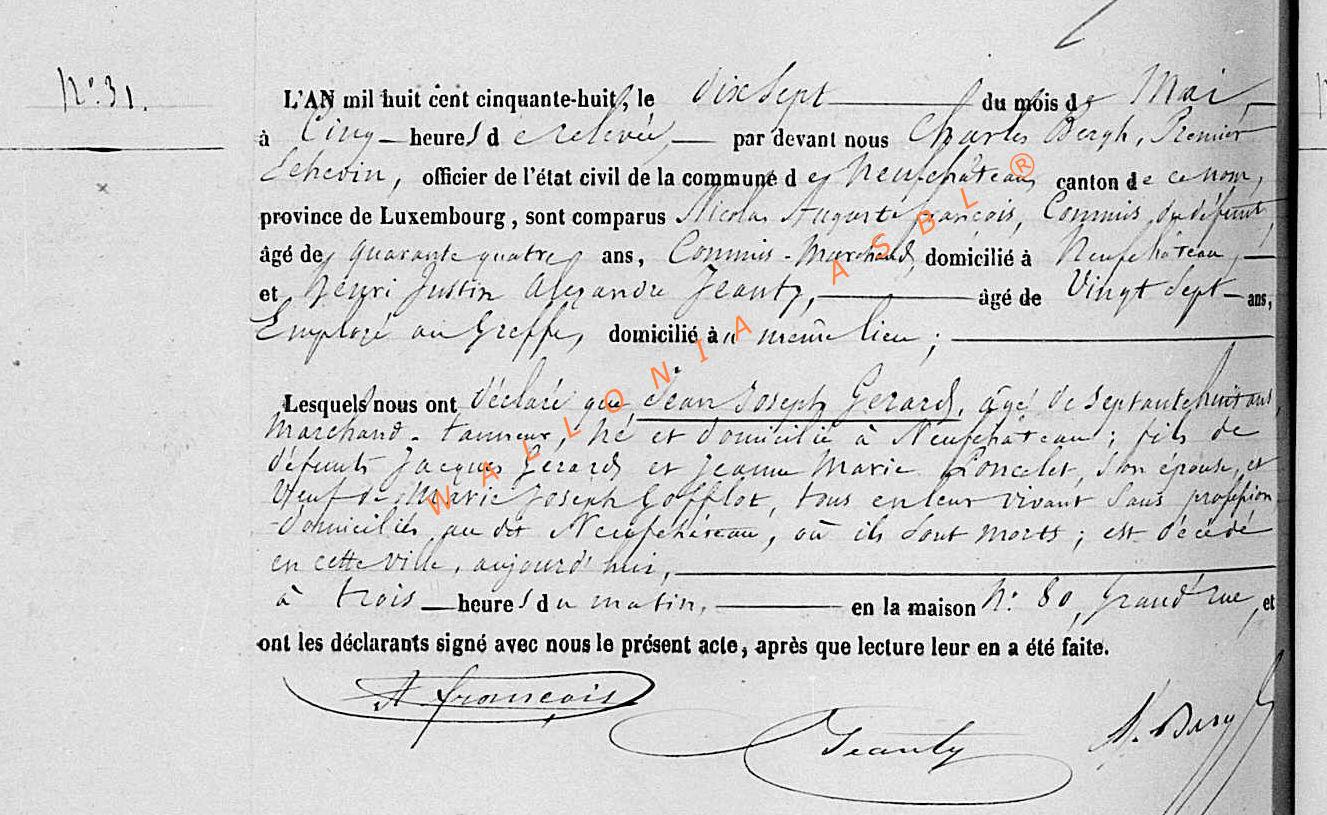 N.° 31.
L'AN mil huit cent cinquante-huit, le dix Sept du mois de Mai,
à Cinq heures de relevée, par devant nous Charles Bergh, Premier
Echevin, officier de l'état civil de la commune de Neufchâteau, canton de ce nom,
province de Luxembourg, sont comparus Nicolas Auguste françois, Commis du défunt,
âgé de quarante quatre ans, Commis-Marchand, domicilié à Neufchâteau,
et Henri Justin Alexandre Jeanty, âgé de Vingt Sept ans,
Employé au Greffe, domicilié au même lieu;
Lesquels nous ont déclaré que Jean Joseph Gerard, âgé de Septante huit ans,
Marchand-tanneur, né et domicilié à Neufchâteau; fils de
défunts Jacques Gerard et Jeanne Marie Poncelet, son épouse, et
Veuf de Marie Joseph Gofflot, tous en leur vivant Sans profession
domiciliés au dit Neufchâteau, où ils sont morts; est décédé
en cette ville, aujourd'hui,
à trois heures du matin, en la maison N.° 80, Grand'rue, et
ont les déclarants signé avec nous le présent acte, après que lecture leur en a été faite.
A françois
Jeanty
WALLONIA ASBL ®